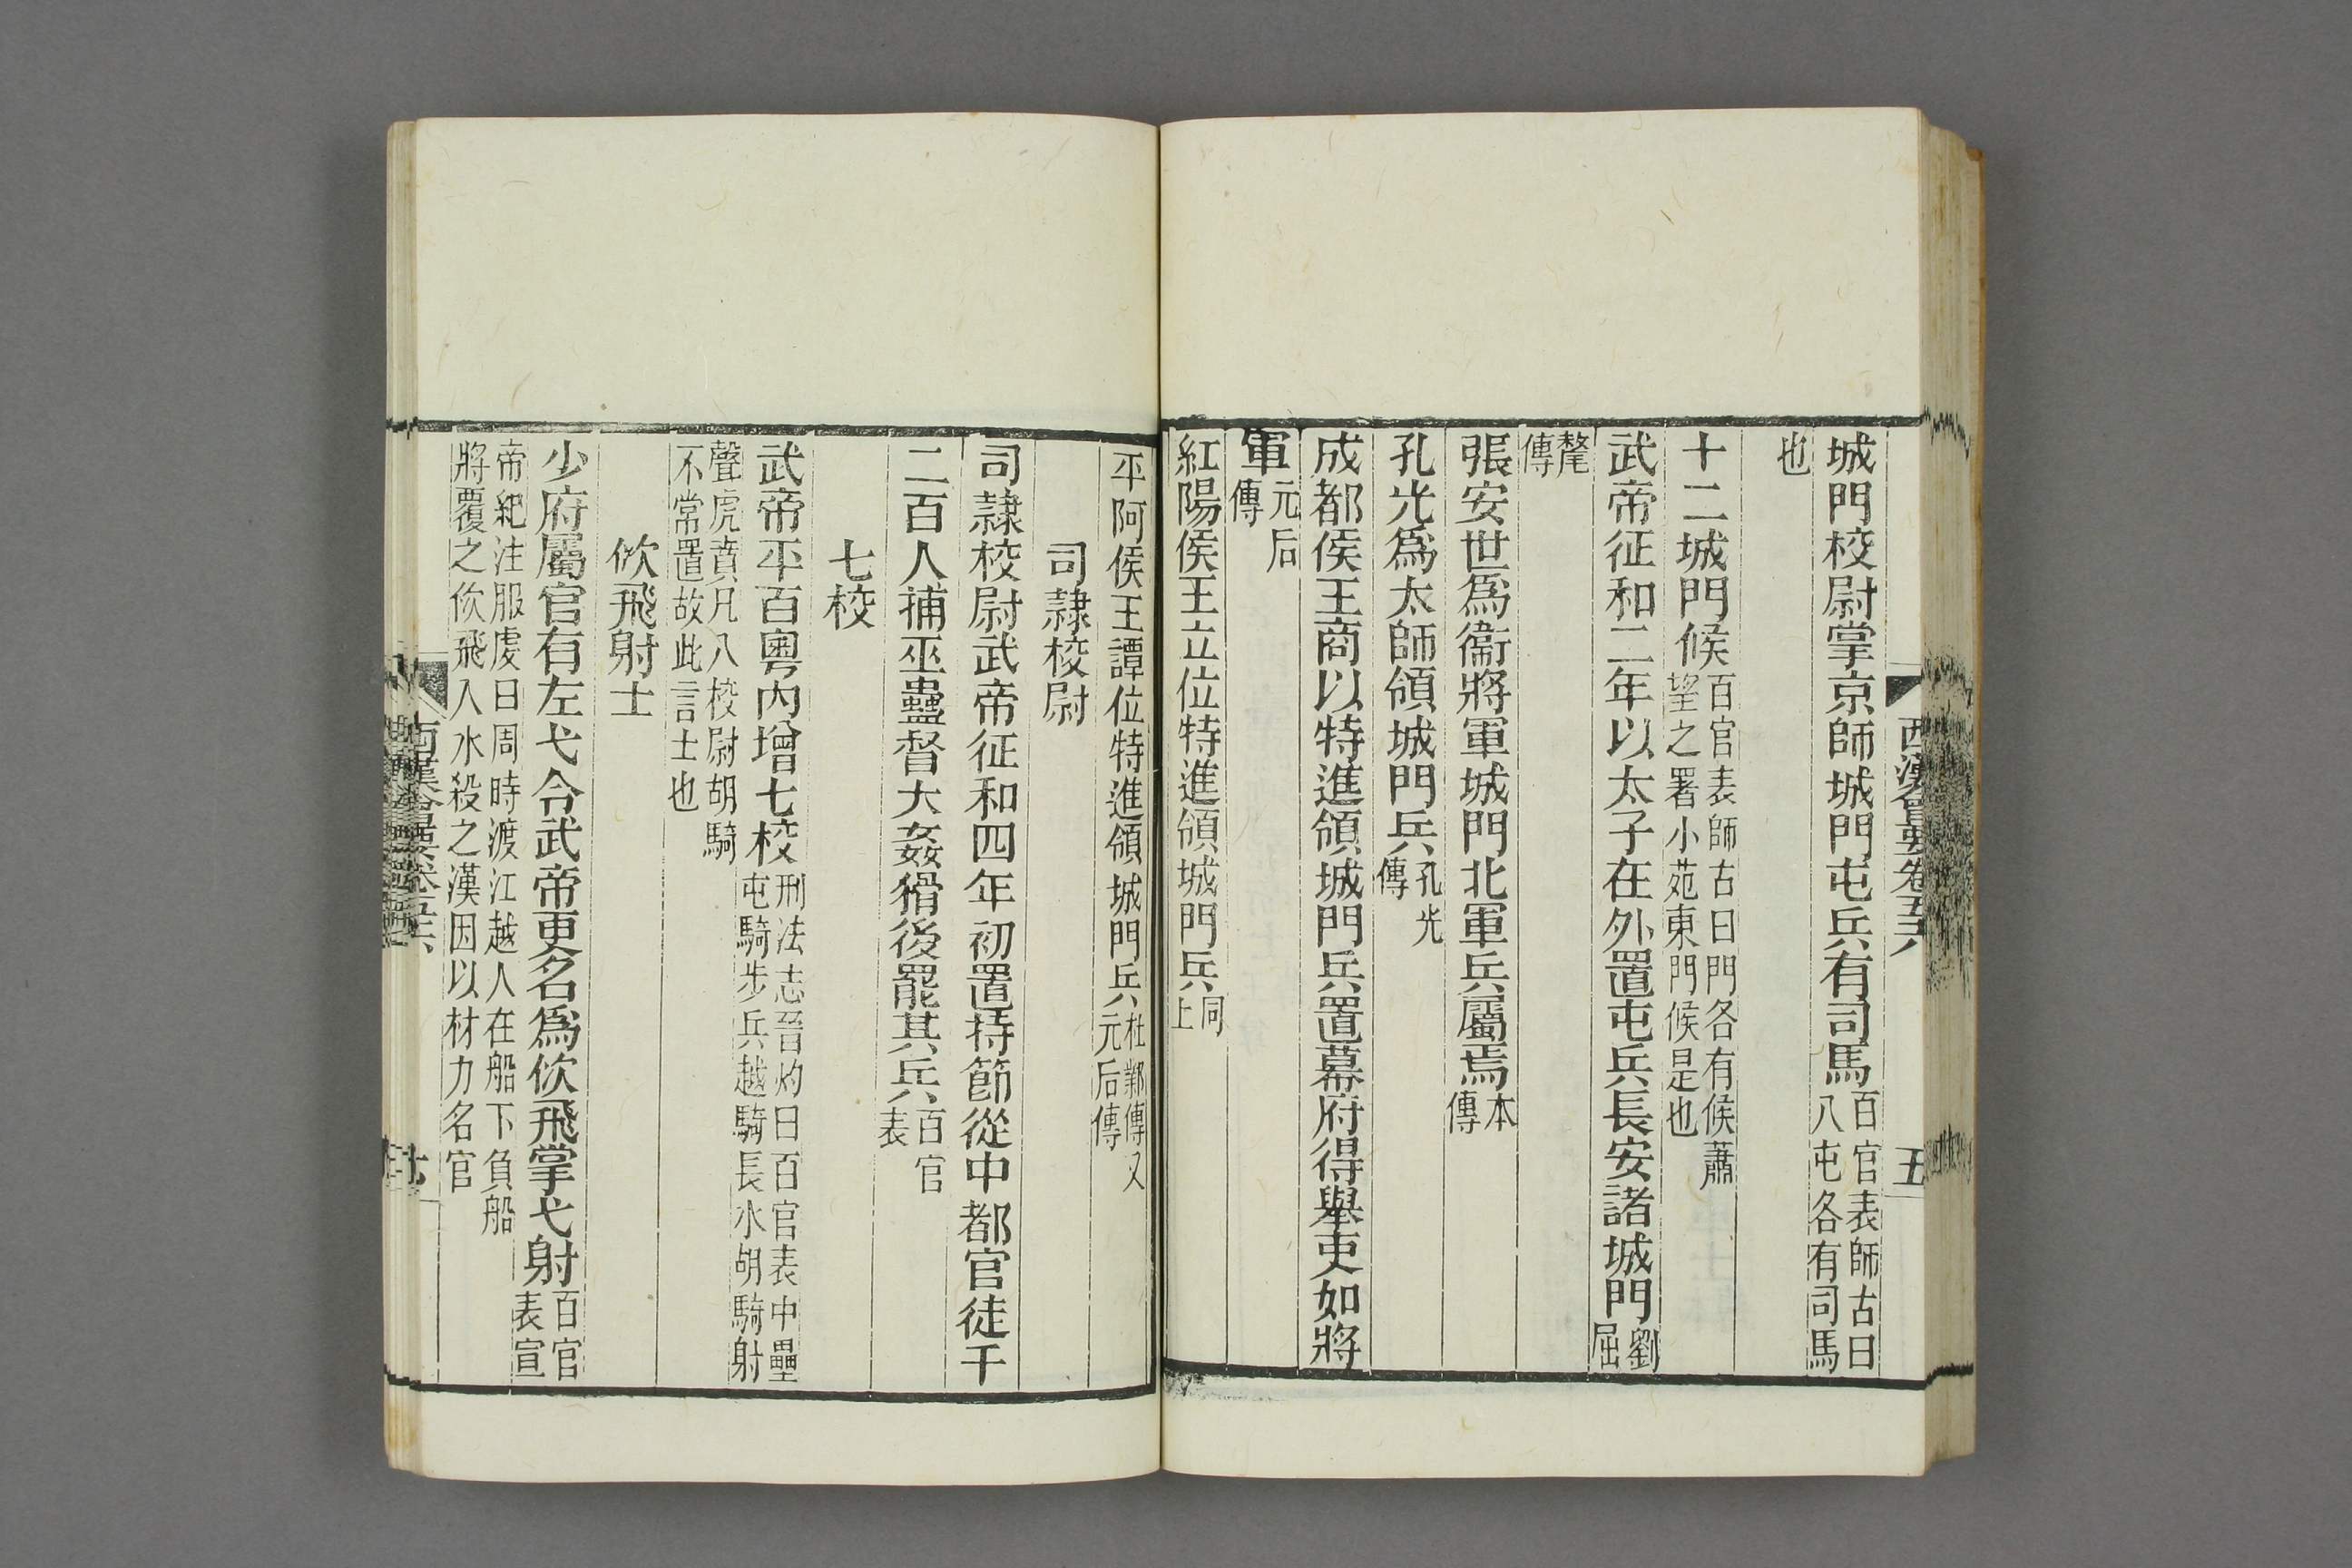 西漢會要卷五六
五
城門校尉掌京師城門屯兵有司馬百官表師古曰八屯各有司馬
也
十二城門候百官表師古曰門各有候蕭望之署小苑東門候是也
武帝征和二年以太子在外置屯兵長安諸城門劉屈
氂傳
張安世爲衞將軍城門北軍兵屬焉本傳
孔光爲太師領城門兵孔光傳
成都侯王商以特進領城門兵置幕府得舉吏如將
軍元后傳
紅陽侯王立位特進領城門兵同上
平阿侯王譚位特進領城門兵杜鄴傳又元后傳
司隸校尉
司隸校尉武帝征和四年初置持節從中都官徒千
二百人捕巫蠱督大姦猾後罷其兵百官表
七校
武帝平百粵內增七校刑法志晉灼曰百官表中壘屯騎步兵越騎長水胡騎射
聲虎賁凡八校尉胡騎不常置故此言七也
佽飛射士
少府屬官有左弋令武帝更名爲佽飛掌弋射百官表宣
帝紀注服虔曰周時渡江越人在船下負船將覆之佽飛入水殺之漢因以材力名官